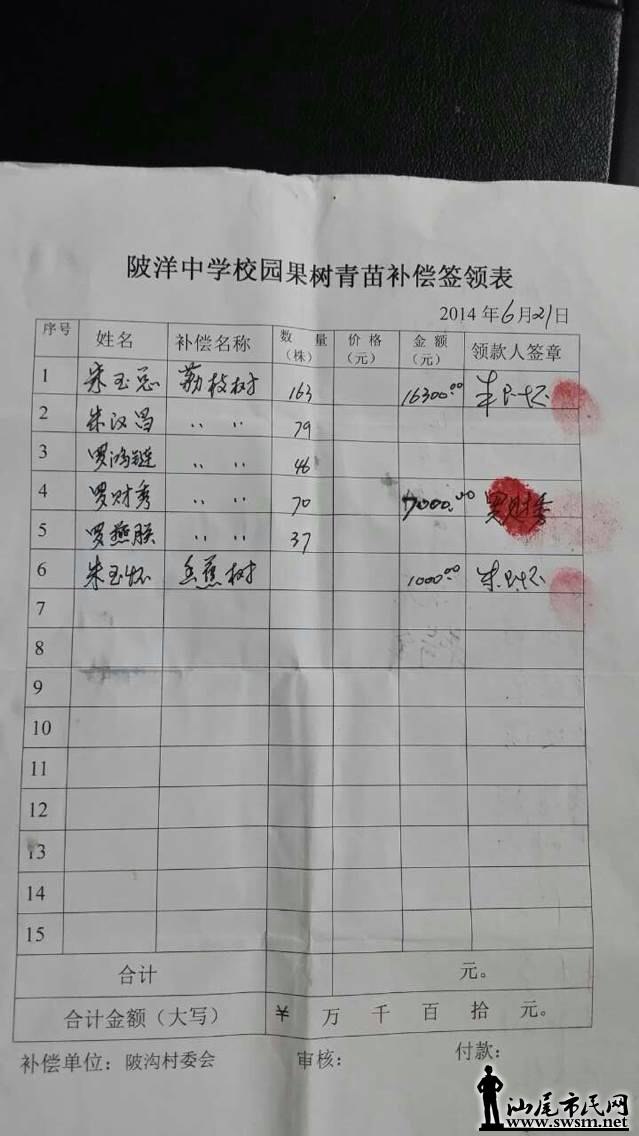 陂洋中学校园果树青苗补偿签领表
2014年6月21日
序号 姓名 补偿名称 数量（株） 价格（元） 金额（元） 领款人签章
1 朱玉 荔枝树 163 16300.00 朱
2 朱汉昌 〃 〃 79
3 罗鸿链 〃 〃 46
4 罗财秀 〃 〃 70 7000.00 罗财秀
5 罗燕朕 〃 〃 37
6 朱玉怀 香蕉树 1000.00 朱玉怀
7
8
9
10
11
12
13
14
15
合计 元。
合计金额（大写） ¥ 万 千 百 拾 元。
补偿单位：陂沟村委会 审核： 付款：
汕尾市民网
www.swsm.net